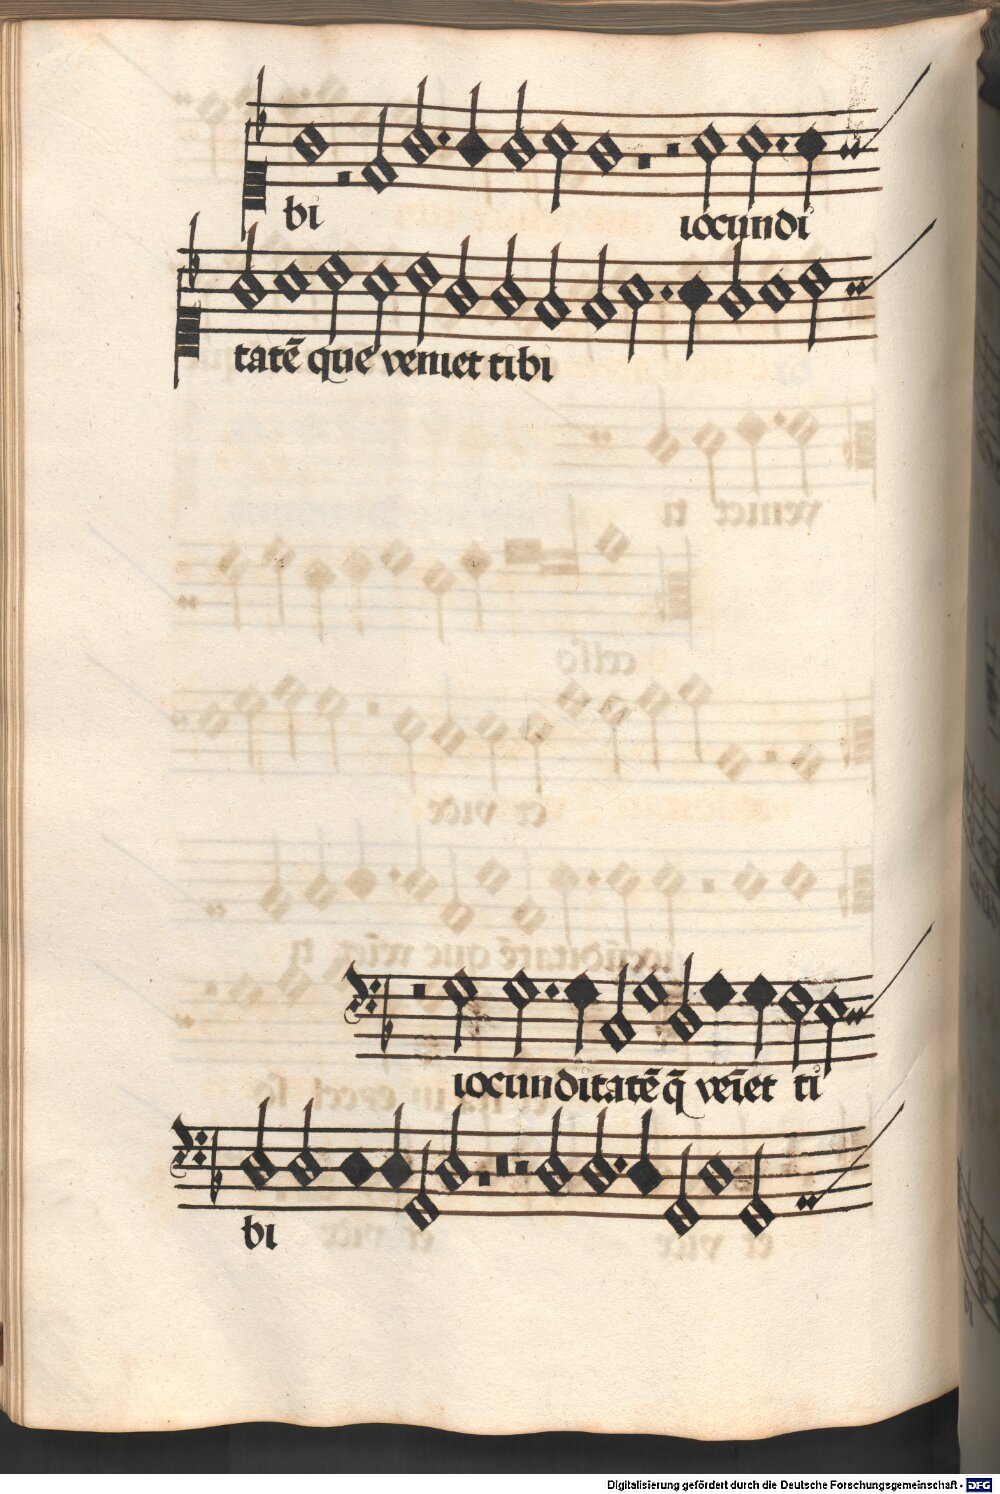 bi iocundi
tatē que veniet tibi
iocunditatē q̄ vēiet ti
bi
Digitalisierung gefördert durch die Deutsche Forschungsgemeinschaft - DFG